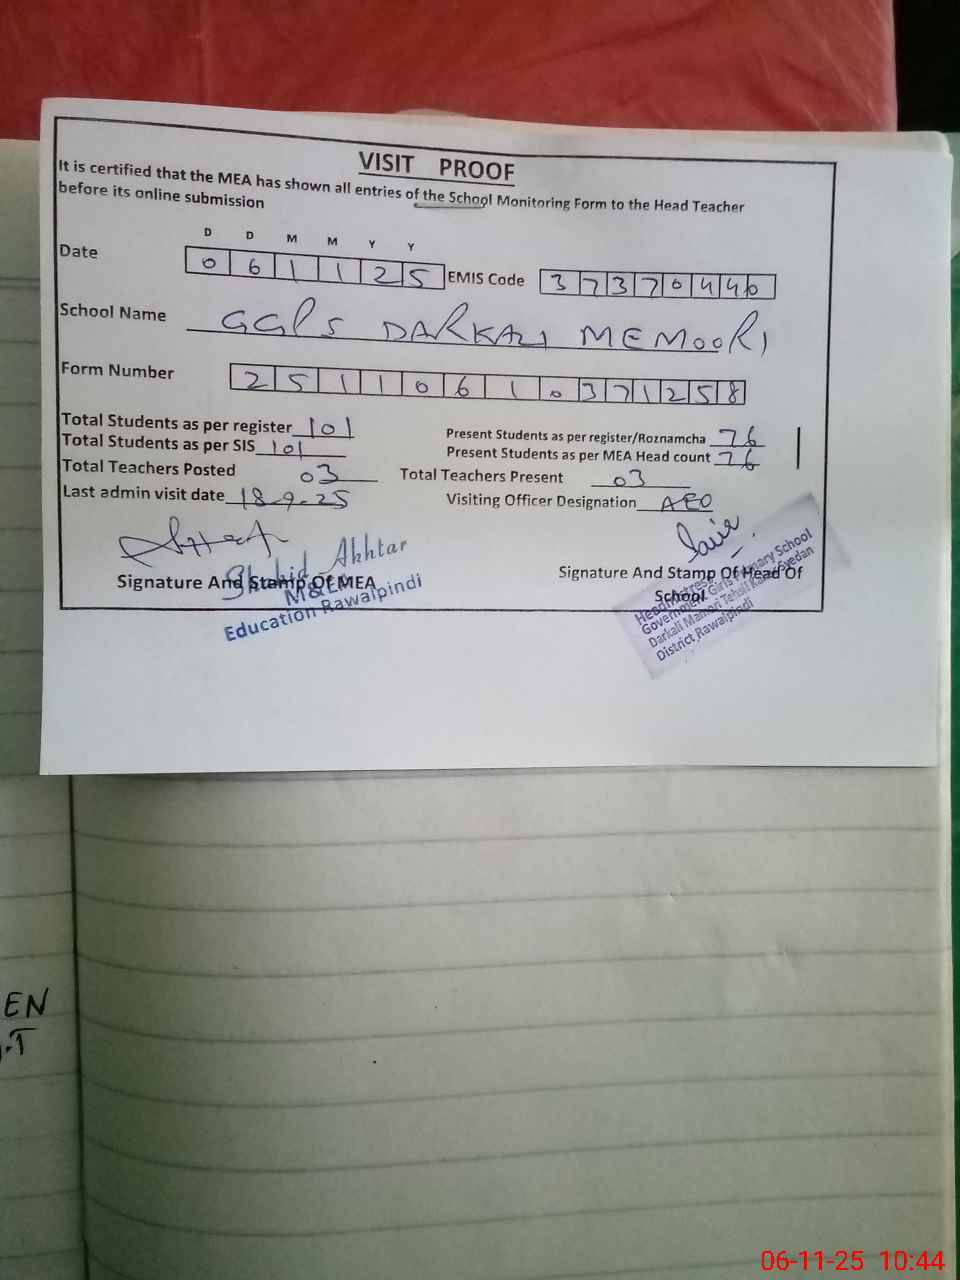 VISIT PROOF
It is certified that the MEA has shown all entries of the School Monitoring Form to the Head Teacher
before its online submission
D D M M Y Y
Date 0 6 1 1 2 5 EMIS Code 3 7 3 7 0 4 4 0
School Name GGPS DARKALI MEMOORI
Form Number 2 5 1 1 0 6 1 0 3 7 1 2 5 8
Total Students as per register 101 Present Students as per register/Roznamcha 76
Total Students as per SIS 101 Present Students as per MEA Head count 76
Total Teachers Posted 03 Total Teachers Present 03
Last admin visit date 18-9-25 Visiting Officer Designation AEO
Shahid Akhtar
Signature And Stamp Of MEA
M&EA
Education Rawalpindi
Signature And Stamp Of Head Of
School
Headmistress
Government Girls Primary School
Darkali Mamori Tehsil Kallar Syedan
District Rawalpindi
EN
.T
06-11-25 10:44